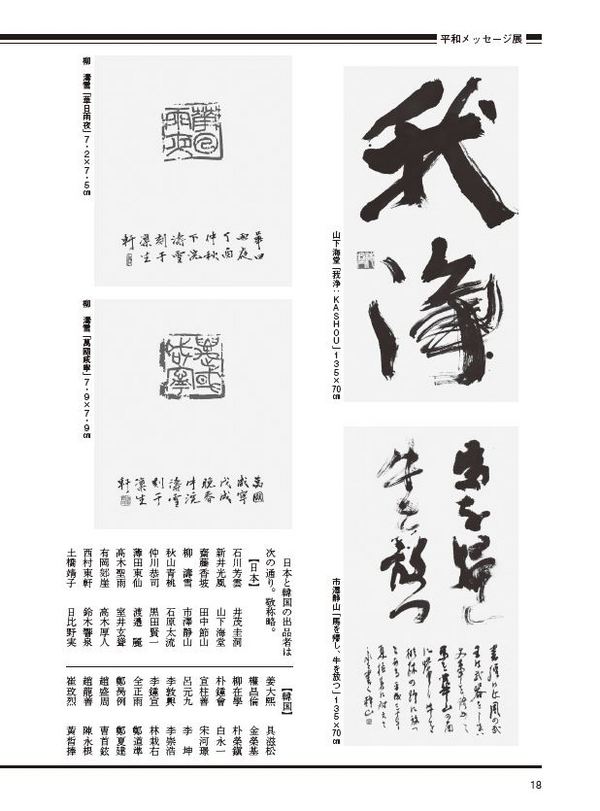 平和メッセージ展
我
浄
山下海堂「我浄：KASHOU」135×70㎝
馬を帰し
牛を放つ
市澤静山「馬を帰し、牛を放つ」135×70㎝
華日
雨夜
丁酉
仲秋
下浣
濤雪
刻于
凜生
軒
柳 濤雪「華日雨夜」7.2×7.5㎝
萬國
咸寧
戊戌
晩春
中浣
濤雪
刻于
凜生
軒
柳 濤雪「萬國咸寧」7.9×7.9㎝
日本と韓国の出品者は
次の通り。敬称略。
【日本】
石川芳雲 井茂圭洞
新井光風 山下海堂
齋藤香坡 田中節山
柳 濤雪 市澤静山
秋山青桃 石原太流
仲川恭司 黒田賢一
薄田東仙 渡邉 麗
高木聖雨 室井玄聳
有岡郯崖 高木厚人
西村東軒 鈴木響泉
土橋靖子 日比野実
【韓国】
姜大熙 具滋松
權昌倫 金榮基
柳在學 朴榮鎭
朴鐘會 白永一
宣柱善 宋河璟
呂元九 李 坤
李敦興 李崇浩
李鐘宣 林栽右
全正雨 鄭道準
鄭夏建
趙盛周 曹首鉉
趙龍善 陳永根
崔玫烈 黃晳捧
18